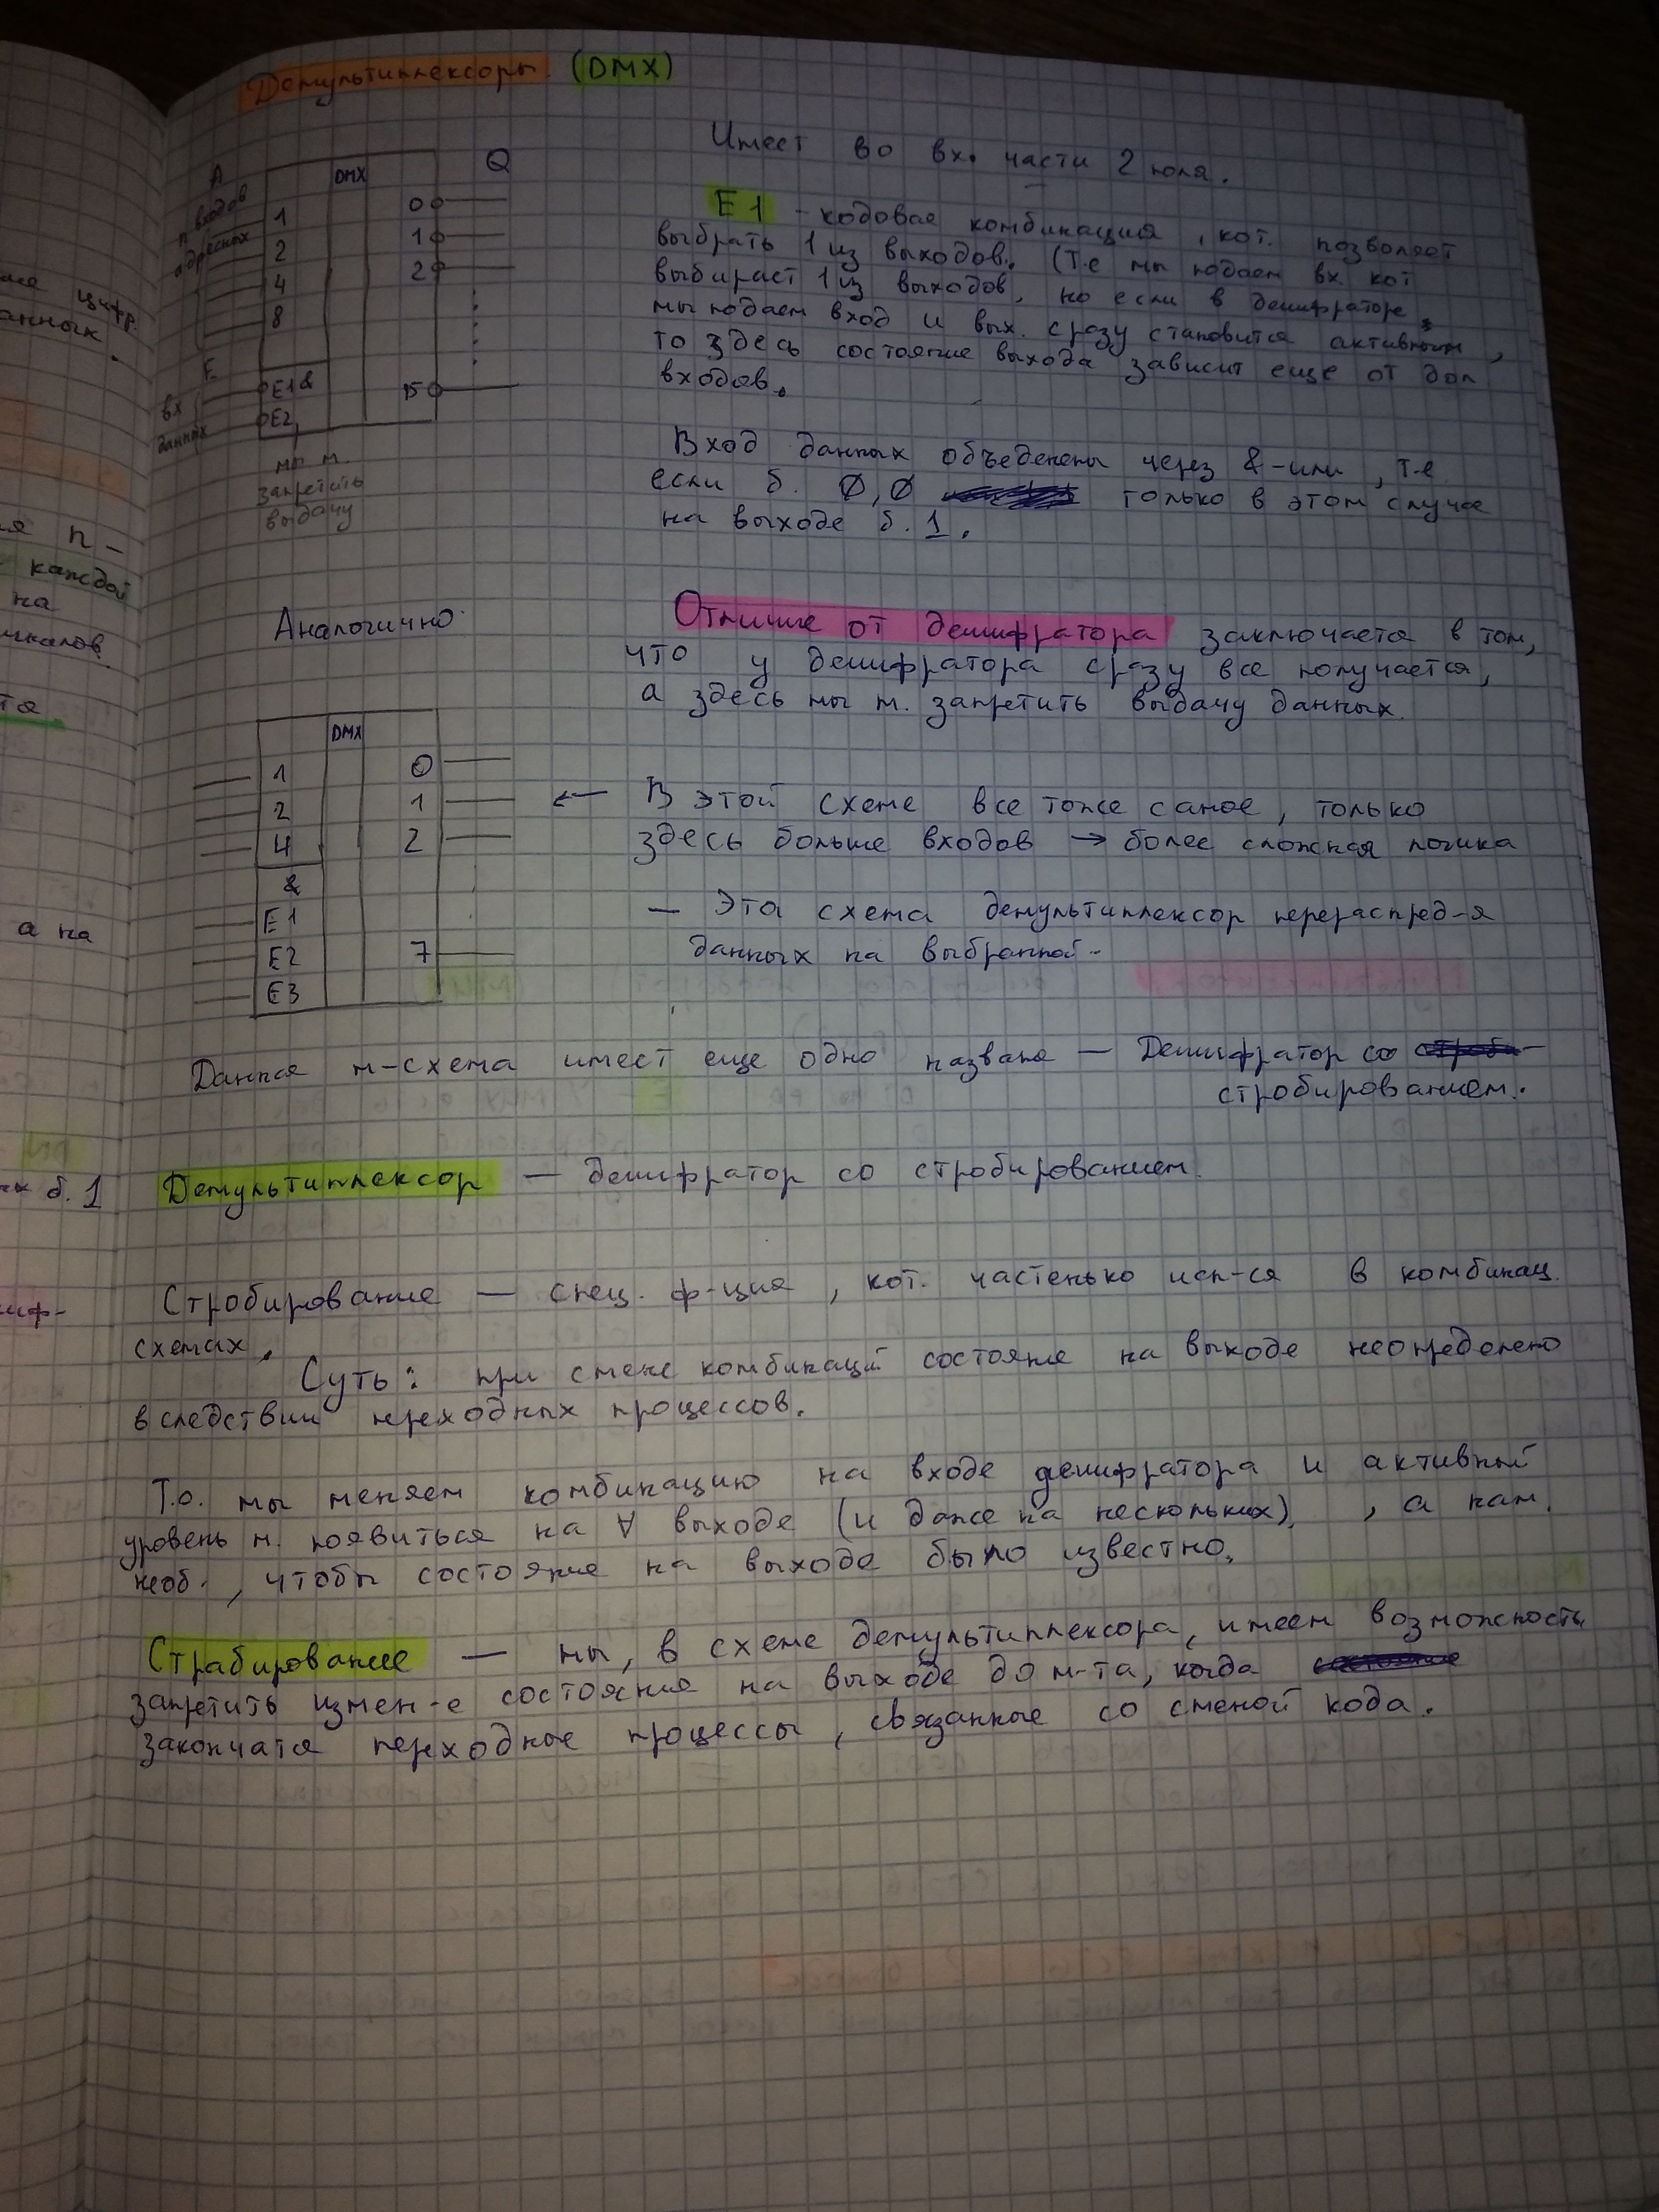 Демультиплексоры. (DMX)
А
n входов
адресных
DMX
Q
1
2
4
8
0
1
2
15
E
вх
данных
E1 &
E2
мы м.
запретить
выдачу
Имеет во вх. части 2 поля.
E1 - кодовая комбинация, кот. позволяет
выбрать 1 из выходов. (Т.е мы подаем вх. кот
выбирает 1 из выходов, но если в дешифраторе
мы подаем вход и вых. сразу становится активным,
то здесь состояние выхода зависит еще от доп
входов.
Вход данных объеденены через &-или, т.е
если б. 0,0 только в этом случае
на выходе б. 1.
Отличие от дешифратора заключается в том,
что у дешифратора сразу все получается,
а здесь мы м. запретить выдачу данных.
Аналогично
DMX
1
2
4
&
E1
E2
E3
0
1
2
7
← В этой схеме все тоже самое, только
здесь больше входов → более сложная логика
— Эта схема демультиплексор перераспред-я
данных на выбранной -
Данная м-схема имеет еще одно назване — Дешифратор со
стробированием.
Демультиплексор — дешифратор со стробированием.
Стробирование — спец. ф-ция, кот. частенько исп-ся в комбинац.
схемах.
Суть: при смене комбинаций состояние на выходе неопределено
вследствии переходных процессов.
Т.о. мы меняем комбинацию на входе дешифратора и активный
уровень м. появиться на ∀ выходе (и даже на нескольких), а нам.
необ., чтобы состояние на выходе было известно.
Страбирование — мы, в схеме демультиплексора, имеем возможность
запретить измен-е состояния на выходе до м-та, когда
закончатся переходные процессы, связанные со сменой кода.
цифр.
анных.
n -
каждой
на
а на
б. 1